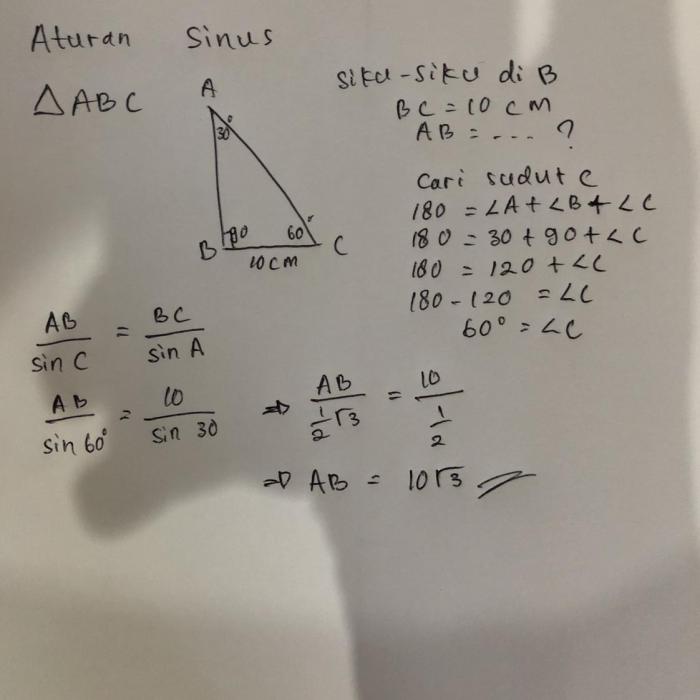 Aturan Sinus
△ABC
A
30°
B
90
60°
C
10 cm
Siku-siku di B
BC = 10 cm
AB = .... ?
Cari sudut C
180 = ∠A + ∠B + ∠C
180 = 30 + 90 + ∠C
180 = 120 + ∠C
180 - 120 = ∠C
60° = ∠C
AB/sin C = BC/sin A
AB/sin 60° = 10/sin 30 ⇒ AB/(1/2 √3) = 10/(1/2)
⇒ AB = 10√3